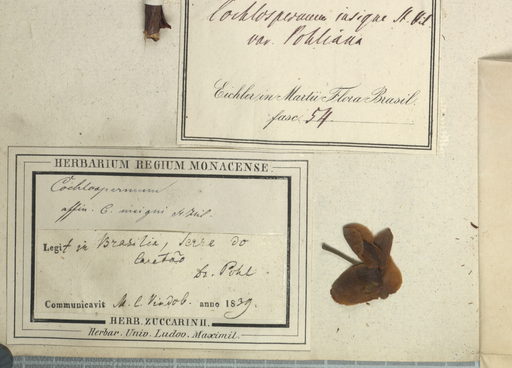 Cochlospermum insigne St. Hil
var. Pohliana
Eichler in Martii Flora Brasil.
fasc. 54
HERBARIUM REGIUM MONACENSE.
Cochlospermum
affin. C. insigni St Hil.
Legit in Brasilia, Serra do
Caretão
Dr. Pohl
Communicavit M. C. Vindob. anno 1839.
HERB. ZUCCARINII.
Herbar. Univ. Ludov. Maximil.